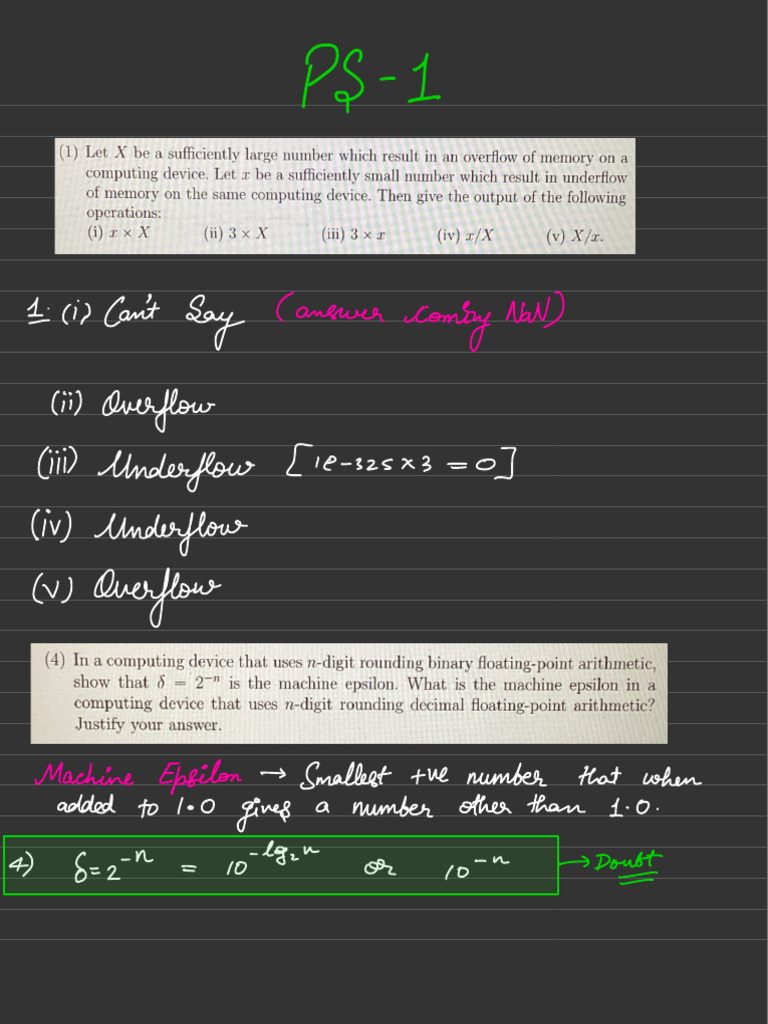 PS-1
(1) Let X be a sufficiently large number which result in an overflow of memory on a
computing device. Let x be a sufficiently small number which result in underflow
of memory on the same computing device. Then give the output of the following
operations:
(i) x × X (ii) 3 × X (iii) 3 × x (iv) x/X (v) X/x.
1. (i) Can't Say (answer coming NaN)
(ii) Overflow
(iii) Underflow [1e-325×3 = 0]
(iv) Underflow
(v) Overflow
(4) In a computing device that uses n-digit rounding binary floating-point arithmetic,
show that δ = 2⁻ⁿ is the machine epsilon. What is the machine epsilon in a
computing device that uses n-digit rounding decimal floating-point arithmetic?
Justify your answer.
Machine Epsilon → Smallest +ve number that when
added to 1.0 gives a number other than 1.0.
4) δ=2⁻ⁿ = 10^(-lg₂n) or 10⁻ⁿ → Doubt